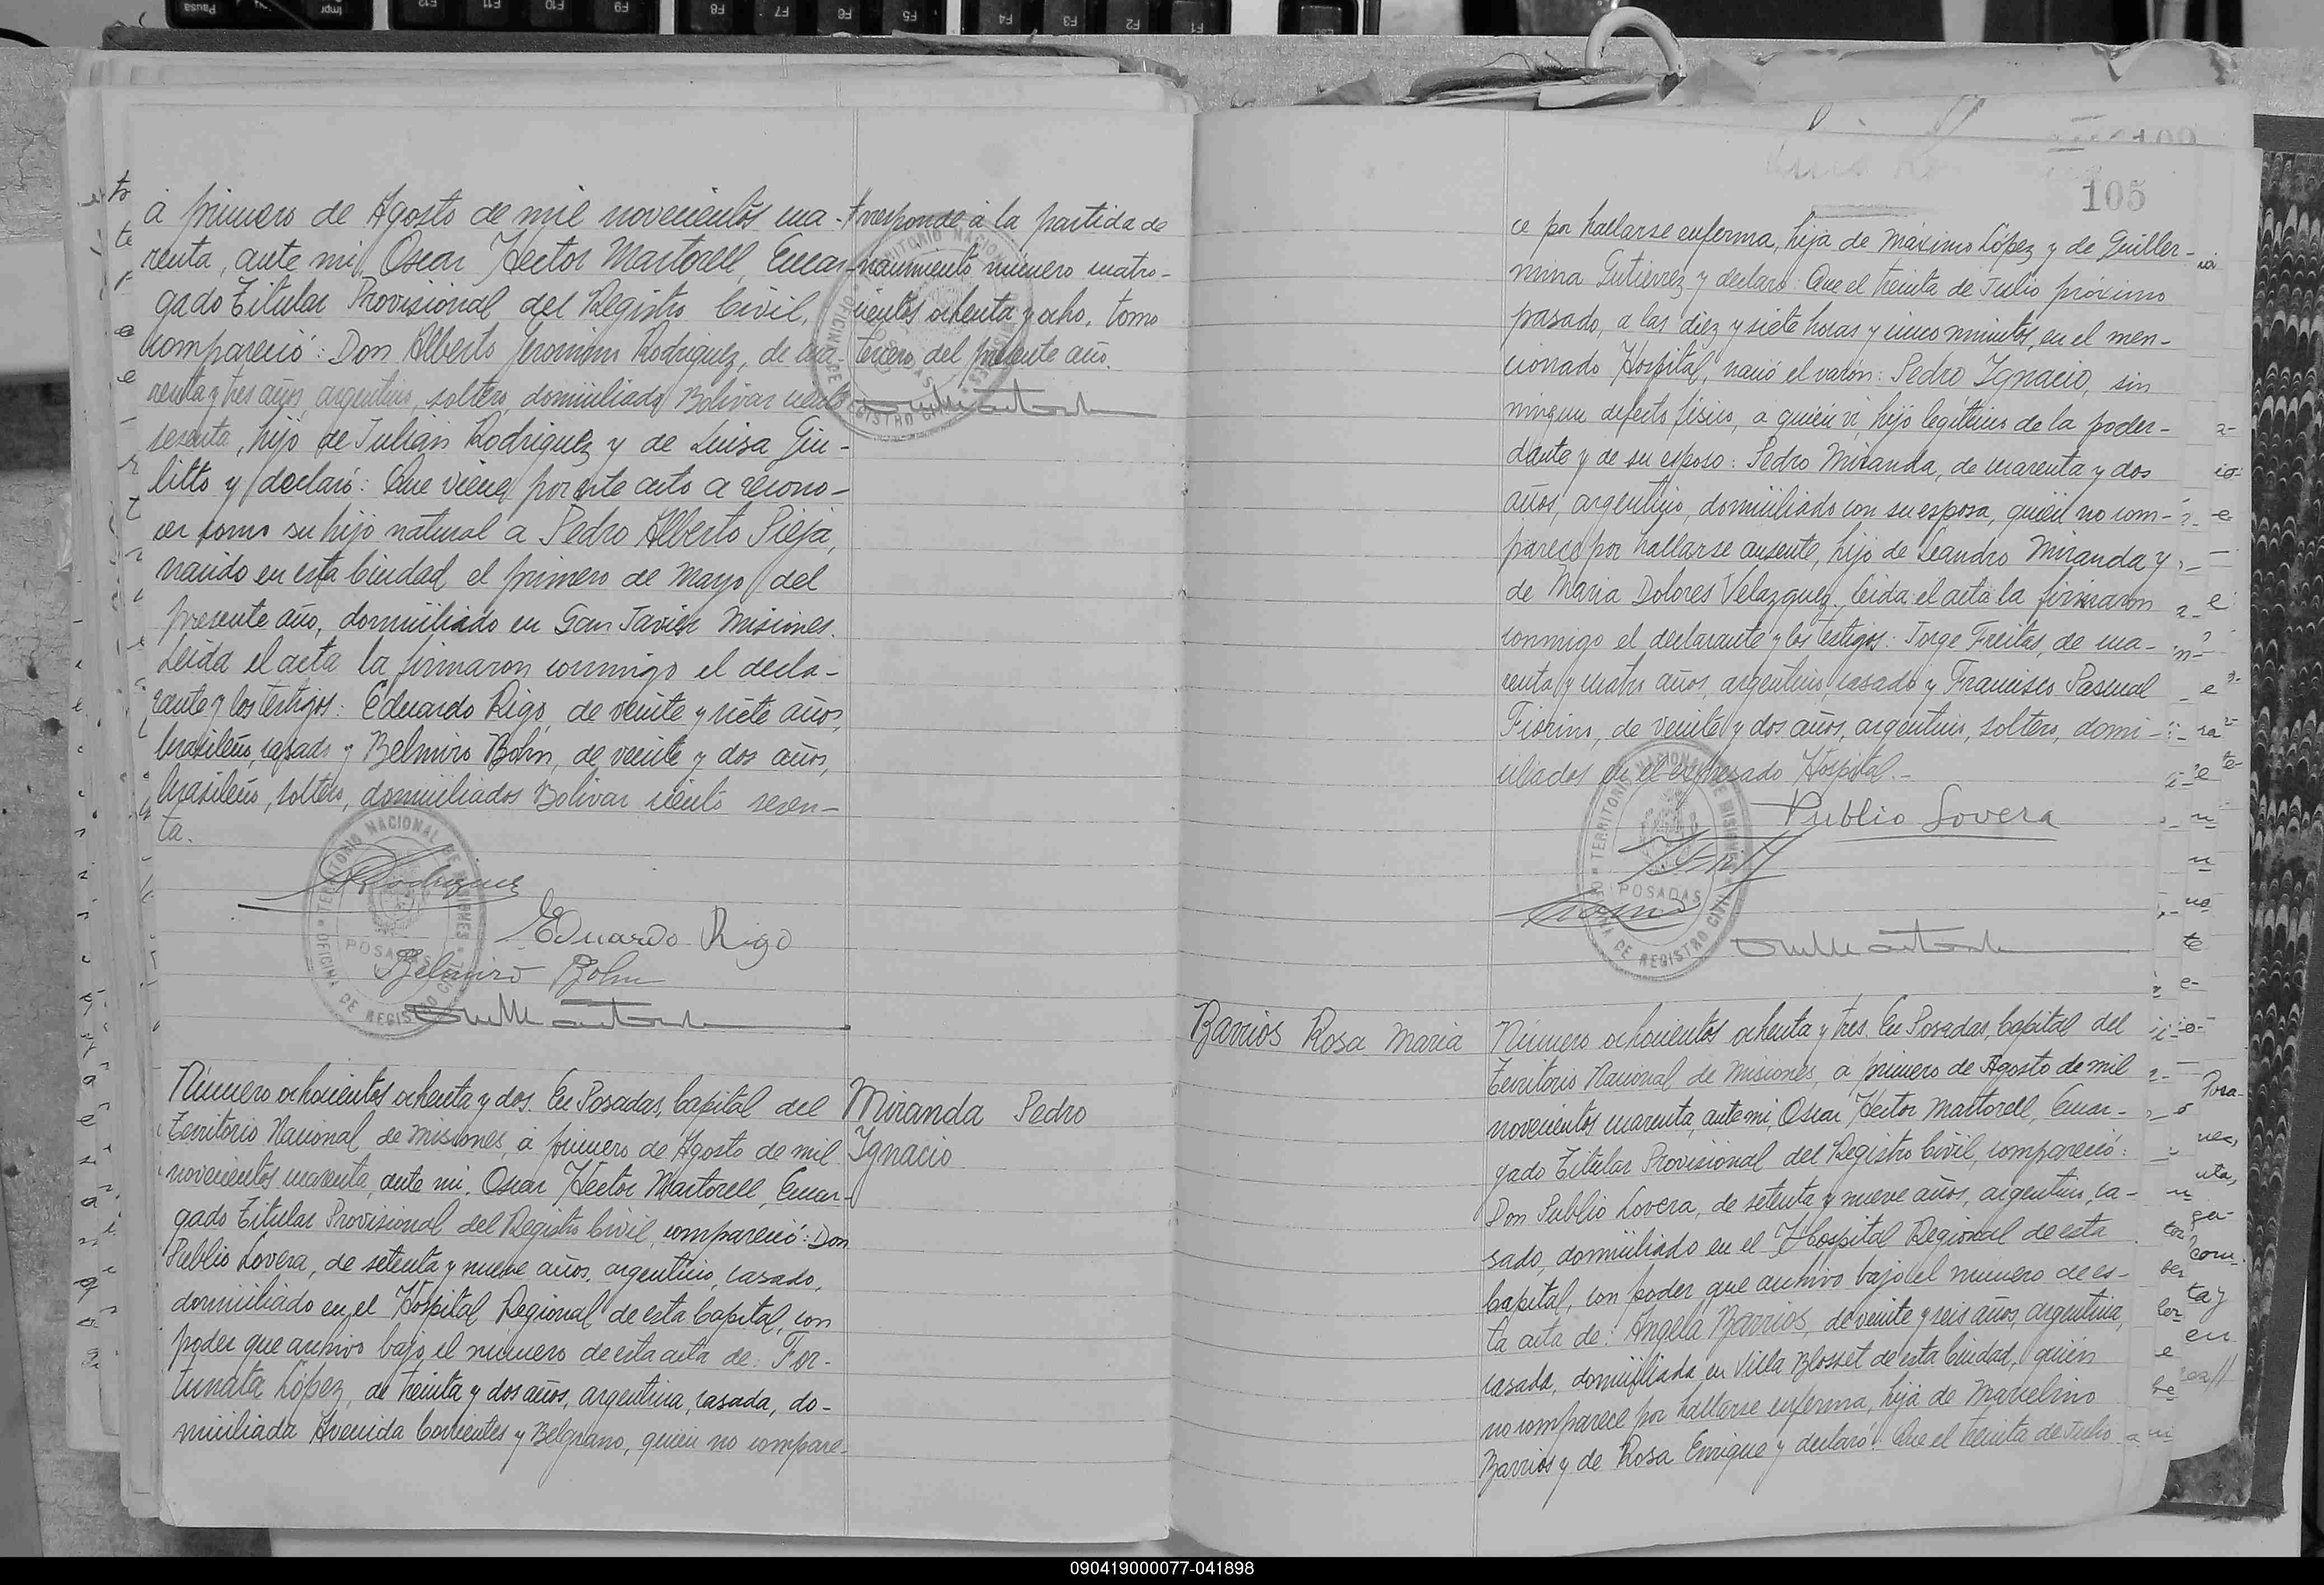 a primero de Agosto de mil novecientos cua-
renta, ante mi, Oscar Hector Martorell, Encar-
gado Titular Provisional del Registro Civil,
compareció: Don Alberto Jeronimo Rodriguez, de cua-
renta y tres años, argentino, soltero, domiciliado Bolivar ciento
sesenta, hijo de Julian Rodriguez y de Luisa Giu-
litto y declaró: Que viene por este acto a recono-
cer como su hijo natural a Pedro Alberto Pieja,
nacido en esta Ciudad el primero de Mayo del
presente año, domiciliado en San Javier Misiones.
Leida el acta la firmaron conmigo el decla-
rante y los testigos: Eduardo Rigo, de veinte y siete años,
brasileño, casado y Belmiro Bohn, de veinte y dos años,
brasileño, soltero, domiciliados Bolivar ciento sesen-
ta.
ARodriguez
Eduardo Rigo
Belmiro Bohn
TERRITORIO NACIONAL DE MISIONES
POSADAS
OFICINA DE REGISTRO CIVIL
rresponde a la partida de
nacimiento número cuatro-
cientos ochenta y ocho, tomo
tercero, del presente año.
Número ochocientos ochenta y dos. En Posadas, Capital del
Territorio Nacional de Misiones, a primero de Agosto de mil
novecientos cuarenta, ante mi, Oscar Hector Martorell, Encar-
gado Titular Provisional del Registro Civil, compareció: Don
Publio Lovera, de setenta y nueve años, argentino, casado,
domiciliado en el Hospital Regional de esta Capital, con
poder que archivo bajo el número de esta acta de: For-
tunata López, de treinta y dos años, argentina, casada, do-
miciliada Avenida Corrientes y Belgrano, quien no compare-
Miranda Pedro
Ignacio
105
ce por hallarse enferma, hija de Máximo López y de Guiller-
mina Gutierrez y declaró: Que el treinta de Julio próximo
pasado, a las diez y siete horas y cinco minutos, en el men-
cionado Hospital, nació el varón: Pedro Ignacio, sin
ningun defecto físico, a quien vi, hijo legítimo de la poder-
dante y de su esposo: Pedro Miranda, de cuarenta y dos
años, argentino, domiciliado con su esposa, quien no com-
parece por hallarse ausente, hijo de Leandro Miranda y
de Maria Dolores Velazquez. Leida el acta la firmaron
conmigo el declarante y los testigos: Jorge Freitas, de cua-
renta y cuatro años, argentino, casado y Francisco Pascual
Fiorino, de veinte y dos años, argentino, soltero, domi-
ciliados en el expresado Hospital.-
Publio Lovera
TERRITORIO NACIONAL DE MISIONES
POSADAS
OFICINA DE REGISTRO CIVIL
Barrios Rosa Maria
Número ochocientos ochenta y tres. En Posadas, Capital del
Territorio Nacional de Misiones, a primero de Agosto de mil
novecientos cuarenta, ante mi, Oscar Hector Martorell, Encar-
gado Titular Provisional del Registro Civil, compareció:
Don Publio Lovera, de setenta y nueve años, argentino, ca-
sado, domiciliado en el Hospital Regional de esta
Capital, con poder que archivo bajo el numero de es-
ta acta de: Angela Barrios, de veinte y seis años, argentina,
casada, domiciliada en Villa Blosset de esta Ciudad, quien
no comparece por hallarse enferma, hija de Marcelino
Barrios y de Rosa Enrique y declaró: Que el treinta de Julio
090419000077-041898